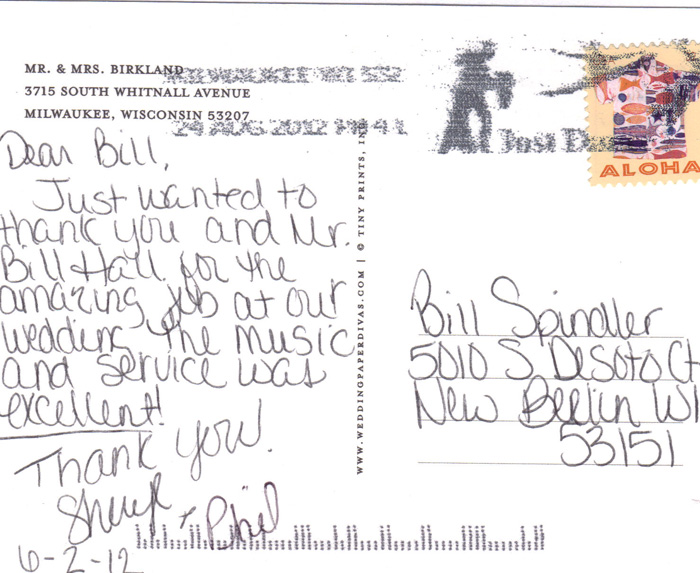 MR. & MRS. BIRKLAND
3715 SOUTH WHITNALL AVENUE
MILWAUKEE, WISCONSIN 53207
MILWAUKEE WI 532
24 AUG 2012 PM 4 L
ALOHA
Dear Bill,
Just wanted to
thank you and Mr.
Bill Hall for the
amazing job at our
wedding. The music
and service was
excellent!
Thank you!
Sheryl + Phil
6-2-12
WWW.WEDDINGPAPERDIVAS.COM | © TINY PRINTS, INC.
Bill Spindler
5010 S Desoto Ct
New Berlin WI
53151